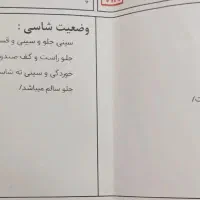 وضعیت شاسی :
سینی جلو و سینی و
جلو راست و کف
خوردگی و سینی ته
جلو سالم میباشد/